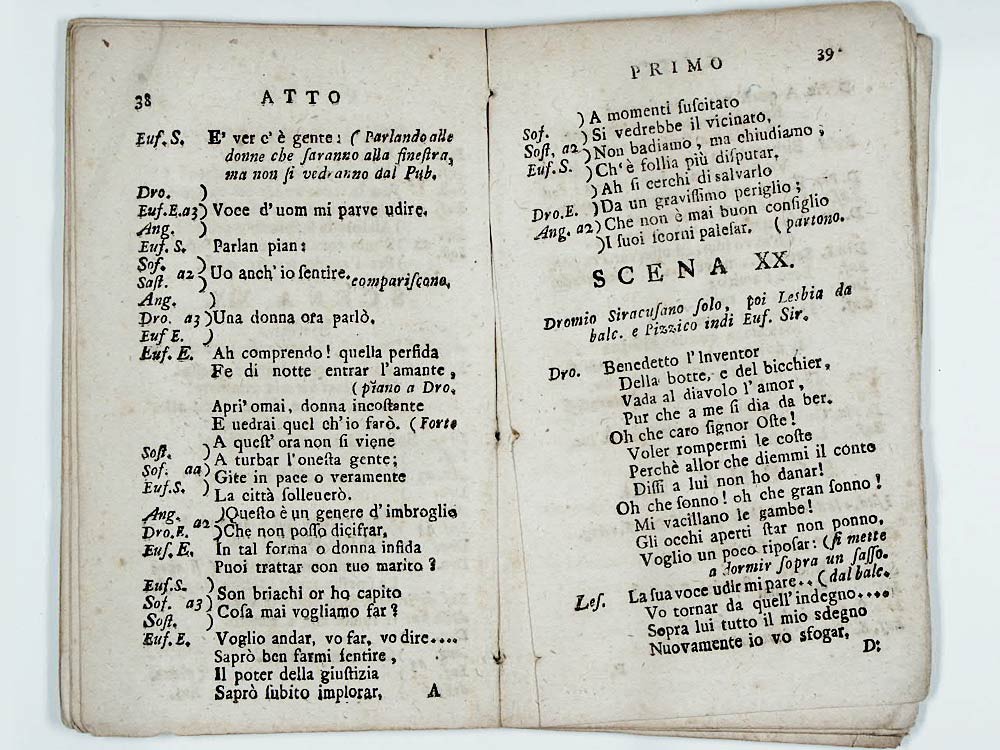 38 ATTO
Euf. S. E' ver c' è gente: ( Parlando alle
donne che ſaranno alla fineſtra,
ma non ſi vedranno dal Pub.
Dro. )
Euf. E. a3 ) Voce d' uom mi parve udire.
Ang. )
Euf. S. Parlan pian:
Sof. )
Saſt. a2 ) Uo anch' io ſentire. compariſcono.
Ang. )
Dro. a3 ) Una donna ora parlò.
Euf E. )
Euf. E. Ah comprendo! quella perfida
Fe di notte entrar l'amante,
( piano a Dro.
Apri' omai, donna incoſtante
E uedrai quel ch'io farò. ( Forte
A queſt' ora non ſi viene
Soſt. )
Sof. aa ) A turbar l'oneſta gente;
Gite in pace o veramente
Euf.S. )
La città ſolleuerò.
Ang. ) Queſto è un genere d' imbroglio
Dro.E. a2 ) Che non poſſo dicifrar.
Euf. E. In tal forma o donna infida
Puoi trattar con tuo marito?
Euf.S. )
Sof. a3 ) Son briachi or ho capito
Soſt. ) Coſa mai vogliamo far?
Euf. E. Voglio andar, vo far, vo dire....
Saprò ben farmi ſentire,
Il poter della giuſtizia
Saprò ſubito implorar, A
PRIMO 39
) A momenti ſuſcitato
Sof. ) Si vedrebbe il vicinato,
Soſt. a2 ) Non badiamo, ma chiudiamo;
Euf. S. ) Ch'è follia più diſputar.
) Ah ſi cerchi di salvarlo
Dro.E. ) Da un graviſſimo periglio;
Ang. a2 ) Che non è mai buon conſiglio
) I ſuoi ſcorni paleſar. ( partono.
SCENA XX.
Dromio Siracuſano ſolo, poi Lesbia da
balc. e Pizzico indi Euf. Sir.
Dro. Benedetto l'Inventor
Della botte, e del bicchier,
Vada al diavolo l'amor,
Pur che a me ſi dia da ber.
Oh che caro ſignor Oſte!
Voler rompermi le coſte
Perchè allor che diemmi il conto
Diſſi a lui non ho danar!
Oh che ſonno! oh che gran ſonno!
Mi vacillano le gambe!
Gli occhi aperti ſtar non ponno,
Voglio un poco ripoſar: ( ſi mette
a dormir ſopra un ſaſſo.
Leſ. La ſua voce udir mi pare.. ( dal balc.
Vo tornar da quell'indegno....
Sopra lui tutto il mio sdegno
Nuovamente io vo sfogar,
D: